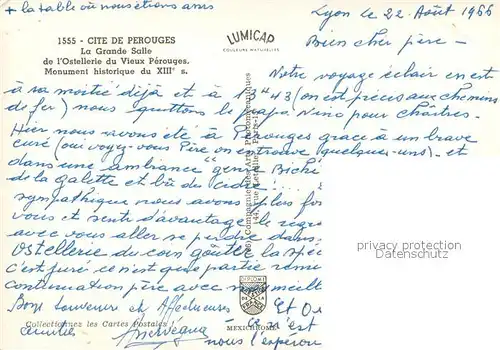 + la table où nous étions assis
Lyon le 22 Août 1966
1555 - CITE DE PEROUGES
La Grande Salle
de l'Ostellerie du Vieux Pérouges.
Monument historique du XIIIe s.
LUMICAP
COULEURS NATURELLES
Bien cher père -
Notre voyage éclair en est
à sa moitié déjà et à 13h43 (on est précis aux chemins
de fer) nous quittons le papa Nino pour Chartres.
Hier nous avons été à Pérouges grâce à un brave
curé (oui voyez-vous Père on en trouve quelques-uns) et
dans une ambiance "genre Bichi
de la galette et bu du cidre
sympathique nous avons plus
vous et senti d'avantage le regre
avec vous aller se perdre dans
Ostellerie du coin goûter la spé
c'est juré ce n'est que partie remi
continuation père avec
Bons souvenirs et Affectueuses
amitiés
Et
ce n'est
nous l'espérons
Compagnie des Arts Photomécaniques
144, Rue Letellier, Paris-15
DIPLOME
DE LA
FRANCE
Collectionnez les Cartes Postales
MEXICHROME
privacy protection
Datenschutz